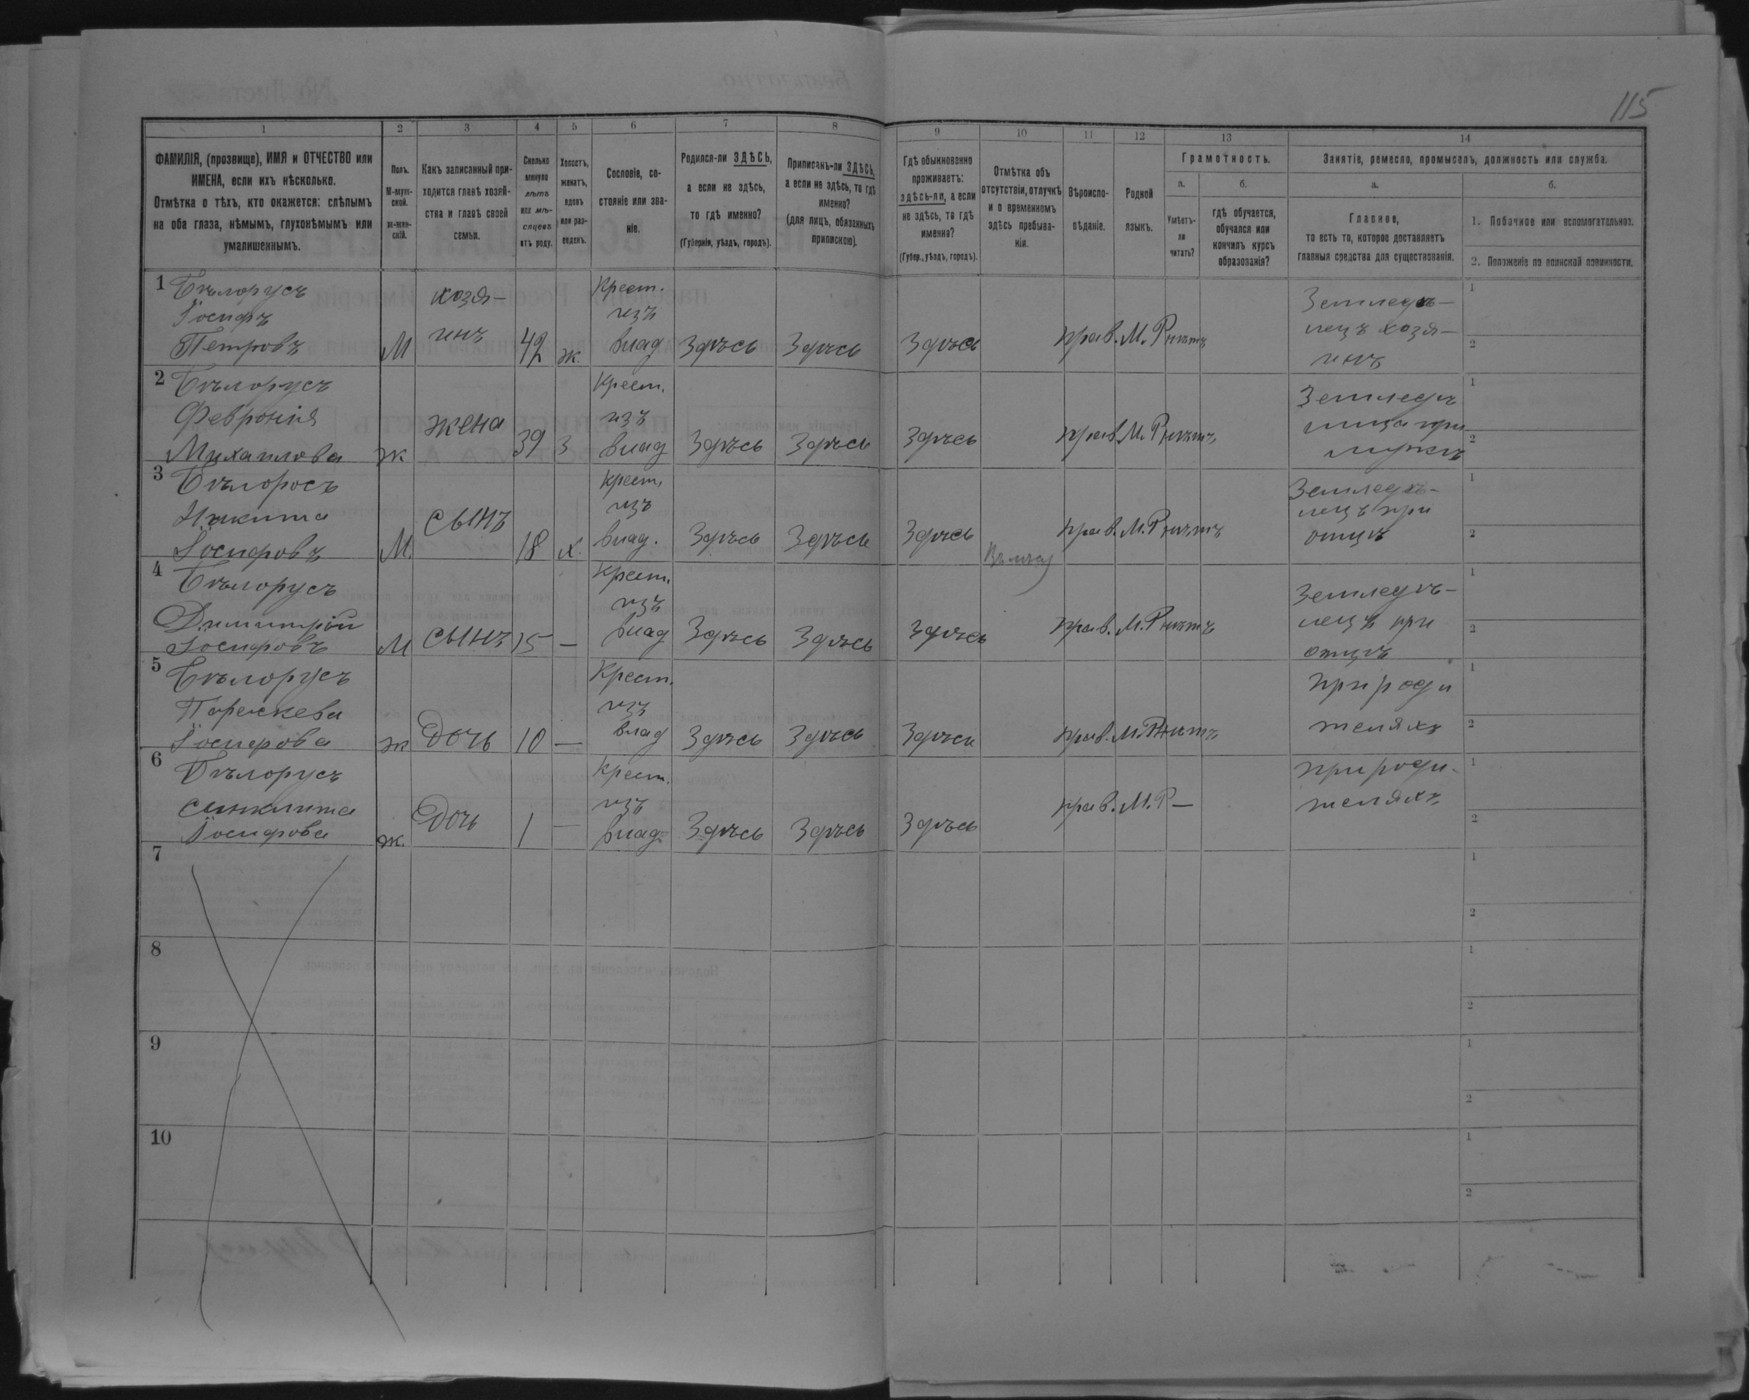 115
1 2 3 4 5 6 7 8 9 10 11 12 13 14
ФАМИЛІЯ, (прозвище), ИМЯ и ОТЧЕСТВО или
ИМЕНА, если ихъ нѣсколько.
Отмѣтка о тѣхъ, кто окажется: слѣпымъ
на оба глаза, нѣмымъ, глухонѣмымъ или
умалишеннымъ.
Полъ.
М-муж-
ской.
ж-жен-
скій.
Какъ записанный при-
ходится главѣ хозяй-
ства и главѣ своей
семьи.
Сколько
минуло
лѣтъ
или мѣ-
сяцевъ
отъ роду.
Холостъ,
женатъ,
вдовъ
или раз-
веденъ.
Сословіе, со-
стояніе или зва-
ніе.
Родился-ли ЗДѢСЬ,
а если не здѣсь,
то гдѣ именно?
(Губернія, уѣздъ, городъ).
Приписанъ-ли ЗДѢСЬ,
а если не здѣсь, то гдѣ
именно?
(для лицъ, обязанныхъ
припискою).
Гдѣ обыкновенно
проживаетъ:
здѣсь-ли, а если
не здѣсь, то гдѣ
именно?
(Губер., уѣздъ, городъ).
Отмѣтка объ
отсутствіи, отлучкѣ
и о временномъ
здѣсь пребыва-
ніи.
Вѣроиспо-
вѣданіе.
Родной
языкъ.
Грамотность.
а.
Умѣетъ-
ли
читать?
б.
гдѣ обучается,
обучался или
кончилъ курсъ
образованія?
Занятіе, ремесло, промыселъ, должность или служба.
а.
Главное,
то есть то, которое доставляетъ
главныя средства для существованія.
б.
1. Побочное или вспомогательное.
2. Положеніе по воинской повинности.
1 Бѣлорусъ
Іосифъ
Петровъ
М
хозя-
инъ
42
ж
Крест.
изъ
влад
Здѣсь Здѣсь Здѣсь
прав. М.Р нѣтъ
Земледѣ-
лецъ хозя-
инъ
1
2
2 Бѣлорусъ
Февронія
Михаилова
ж
жена
39
З
Крест.
изъ
влад
Здѣсь Здѣсь Здѣсь
прав М.Р нѣтъ
Земледѣ
лица при
мужѣ
1
2
3 Бѣлоросъ
Никита
Іосифовъ
М.
сынъ
18
х.
Крест.
изъ
влад.
Здѣсь Здѣсь Здѣсь
прав. М.Р нѣтъ
Земледѣ-
лецъ при
отцѣ
1
2
4 Бѣлорусъ
Димитрій
Іосифовъ
М
сынъ
15
—
Крест.
изъ
влад
Здѣсь Здѣсь Здѣсь
прав. М.Р нѣтъ
Земледѣ-
лецъ при
отцѣ
1
2
5 Бѣлорусъ
Пораскева
Іосифова
ж
Дочь
10
—
Крест.
изъ
влад
Здѣсь Здѣсь Здѣсь
прав. М.Р нѣтъ
при роди
теляхъ
1
2
6 Бѣлорусъ
Синклита
Іосифова
ж.
Дочь
1
—
Крест.
изъ
влад.
Здѣсь Здѣсь Здѣсь
прав. М.Р —
при роди-
теляхъ
1
2
7
1
2
8
1
2
9
1
2
10
1
2